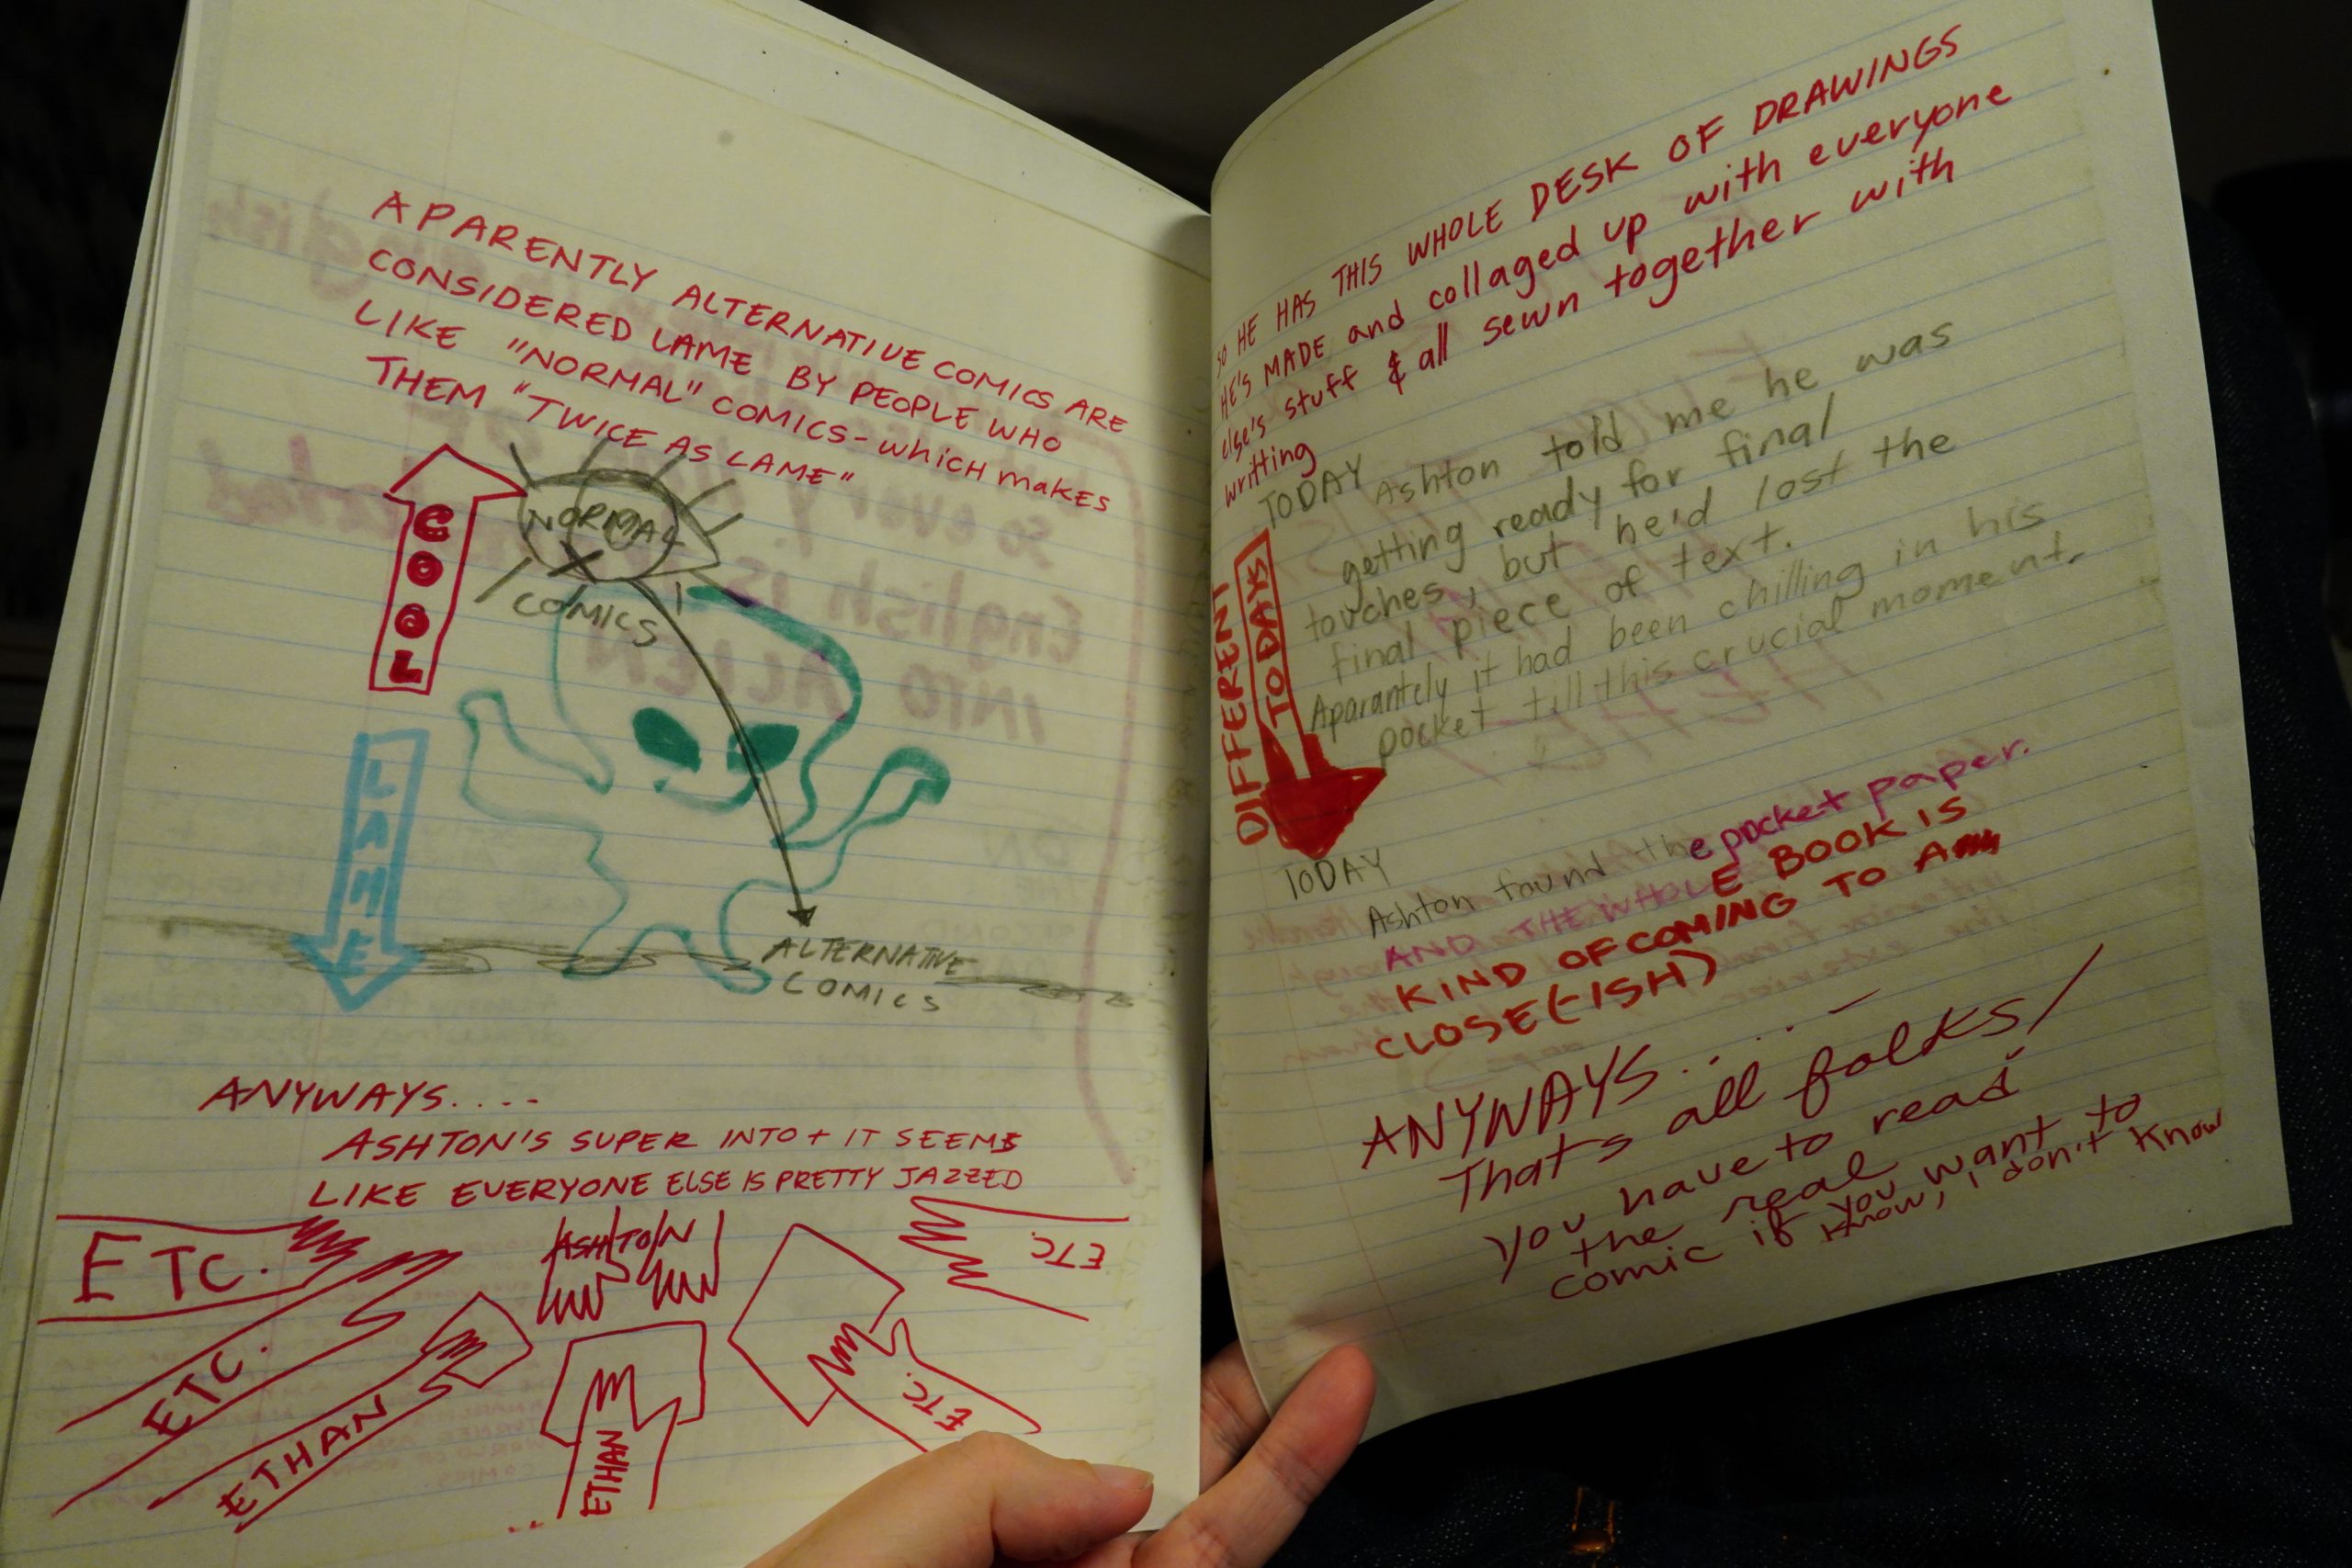 APARENTLY ALTERNATIVE COMICS ARE
CONSIDERED LAME BY PEOPLE WHO
LIKE "NORMAL" COMICS - which makes
THEM "TWICE AS LAME"
COOL
NORMAL
COMICS
LAME
ALTERNATIVE
COMICS
ANYWAYS....
ASHTON'S SUPER INTO + IT SEEMS
LIKE EVERYONE ELSE IS PRETTY JAZZED
ETC.
ASHTON
ETC.
ETC.
ETHAN
ETHAN
ETC.
SO HE HAS THIS WHOLE DESK OF DRAWINGS
HE'S MADE and collaged up with everyone
else's stuff & all sewn together with
writting
TODAY
Ashton told me he was
getting ready for final
touches, but he'd lost the
final piece of text.
Aparantely it had been chilling in his
pocket till this crucial moment.
DIFFERENT
TO DAYS
TODAY
Ashton found the pocket paper.
AND THE WHOLE BOOK IS
KIND OF COMING TO A
CLOSE(-ISH)
ANYWAYS.....
That's all folks!
You have to read
the real
comic if you want to
know, I don't know